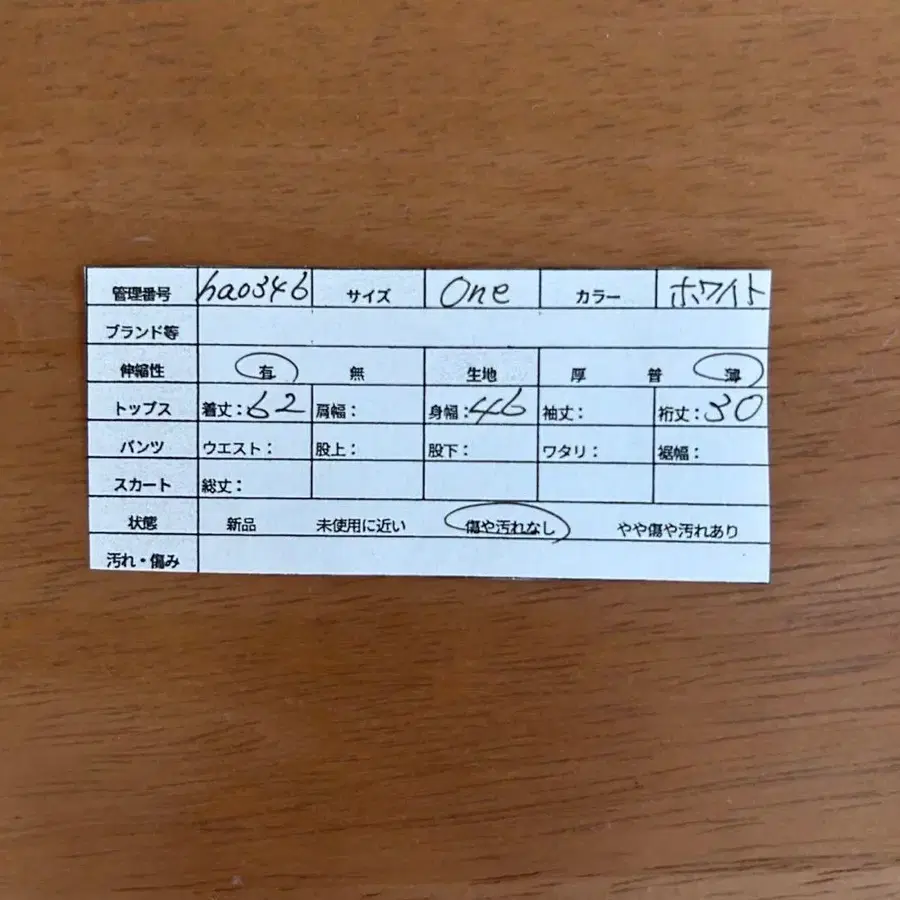 管理番号 hao346 サイズ One カラー ホワイト
ブランド等
伸縮性 有 無 生地 厚 普 薄
トップス 着丈:62 肩幅: 身幅:46 袖丈: 裄丈:30
パンツ ウエスト: 股上: 股下: ワタリ: 裾幅:
スカート 総丈:
状態 新品 未使用に近い 傷や汚れなし やや傷や汚れあり
汚れ・傷み